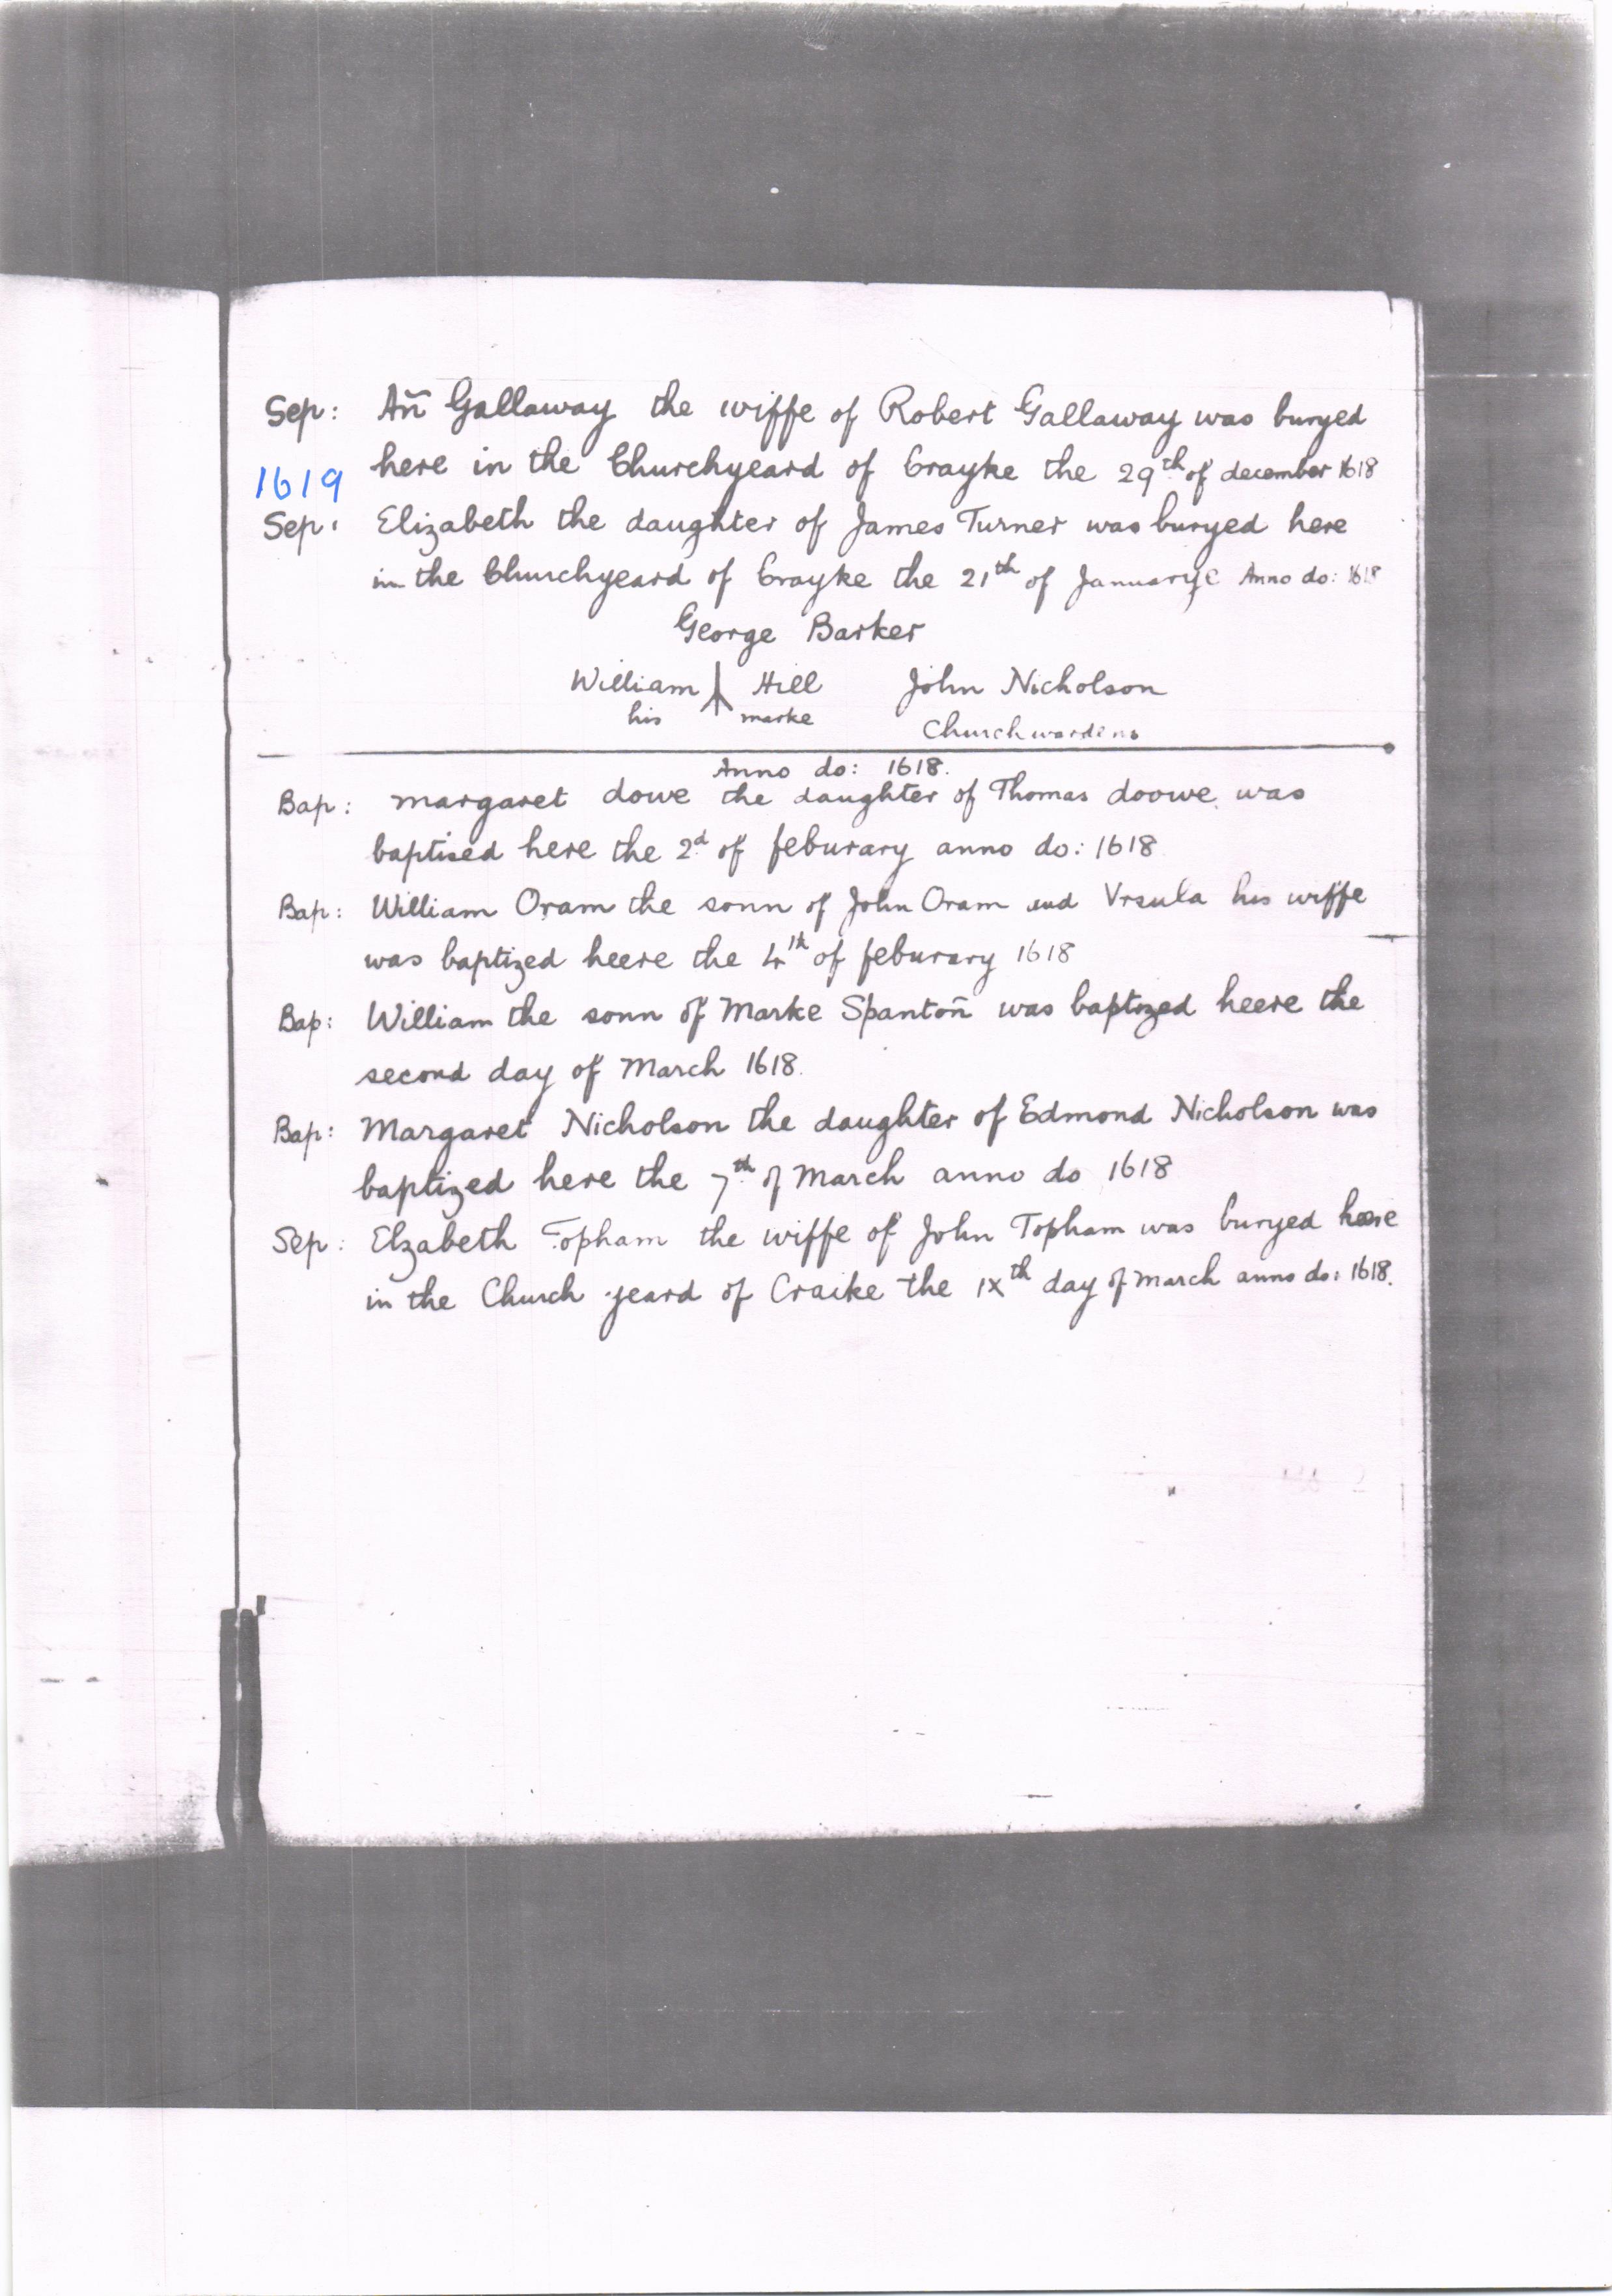 Sep: Añ Gallaway the wiffe of Robert Gallaway was buryed
here in the Churchyeard of Crayke the 29th of december 1618
1619
Sep: Elizabeth the daughter of James Turner was buryed here
in the Churchyeard of Crayke the 21th of Januarye Anno do: 1618
George Barker
William Hill John Nicholson
his marke Churchwardins
Anno do: 1618.
Bap: margaret dowe the daughter of Thomas doowe was
baptised here the 2d of feburary anno do: 1618
Bap: William Oram the sonn of John Oram and Vrsula his wiffe
was baptized heere the 4th of feburary 1618
Bap: William the sonn of Marke Spantoñ was baptized heere the
second day of March 1618.
Bap: Margaret Nicholson the daughter of Edmond Nicholson was
baptized here the 7th of March anno do 1618
Sep: Elzabeth Topham the wiffe of John Topham was buryed heere
in the Church yeard of Craike the 1xth day of march anno do: 1618.